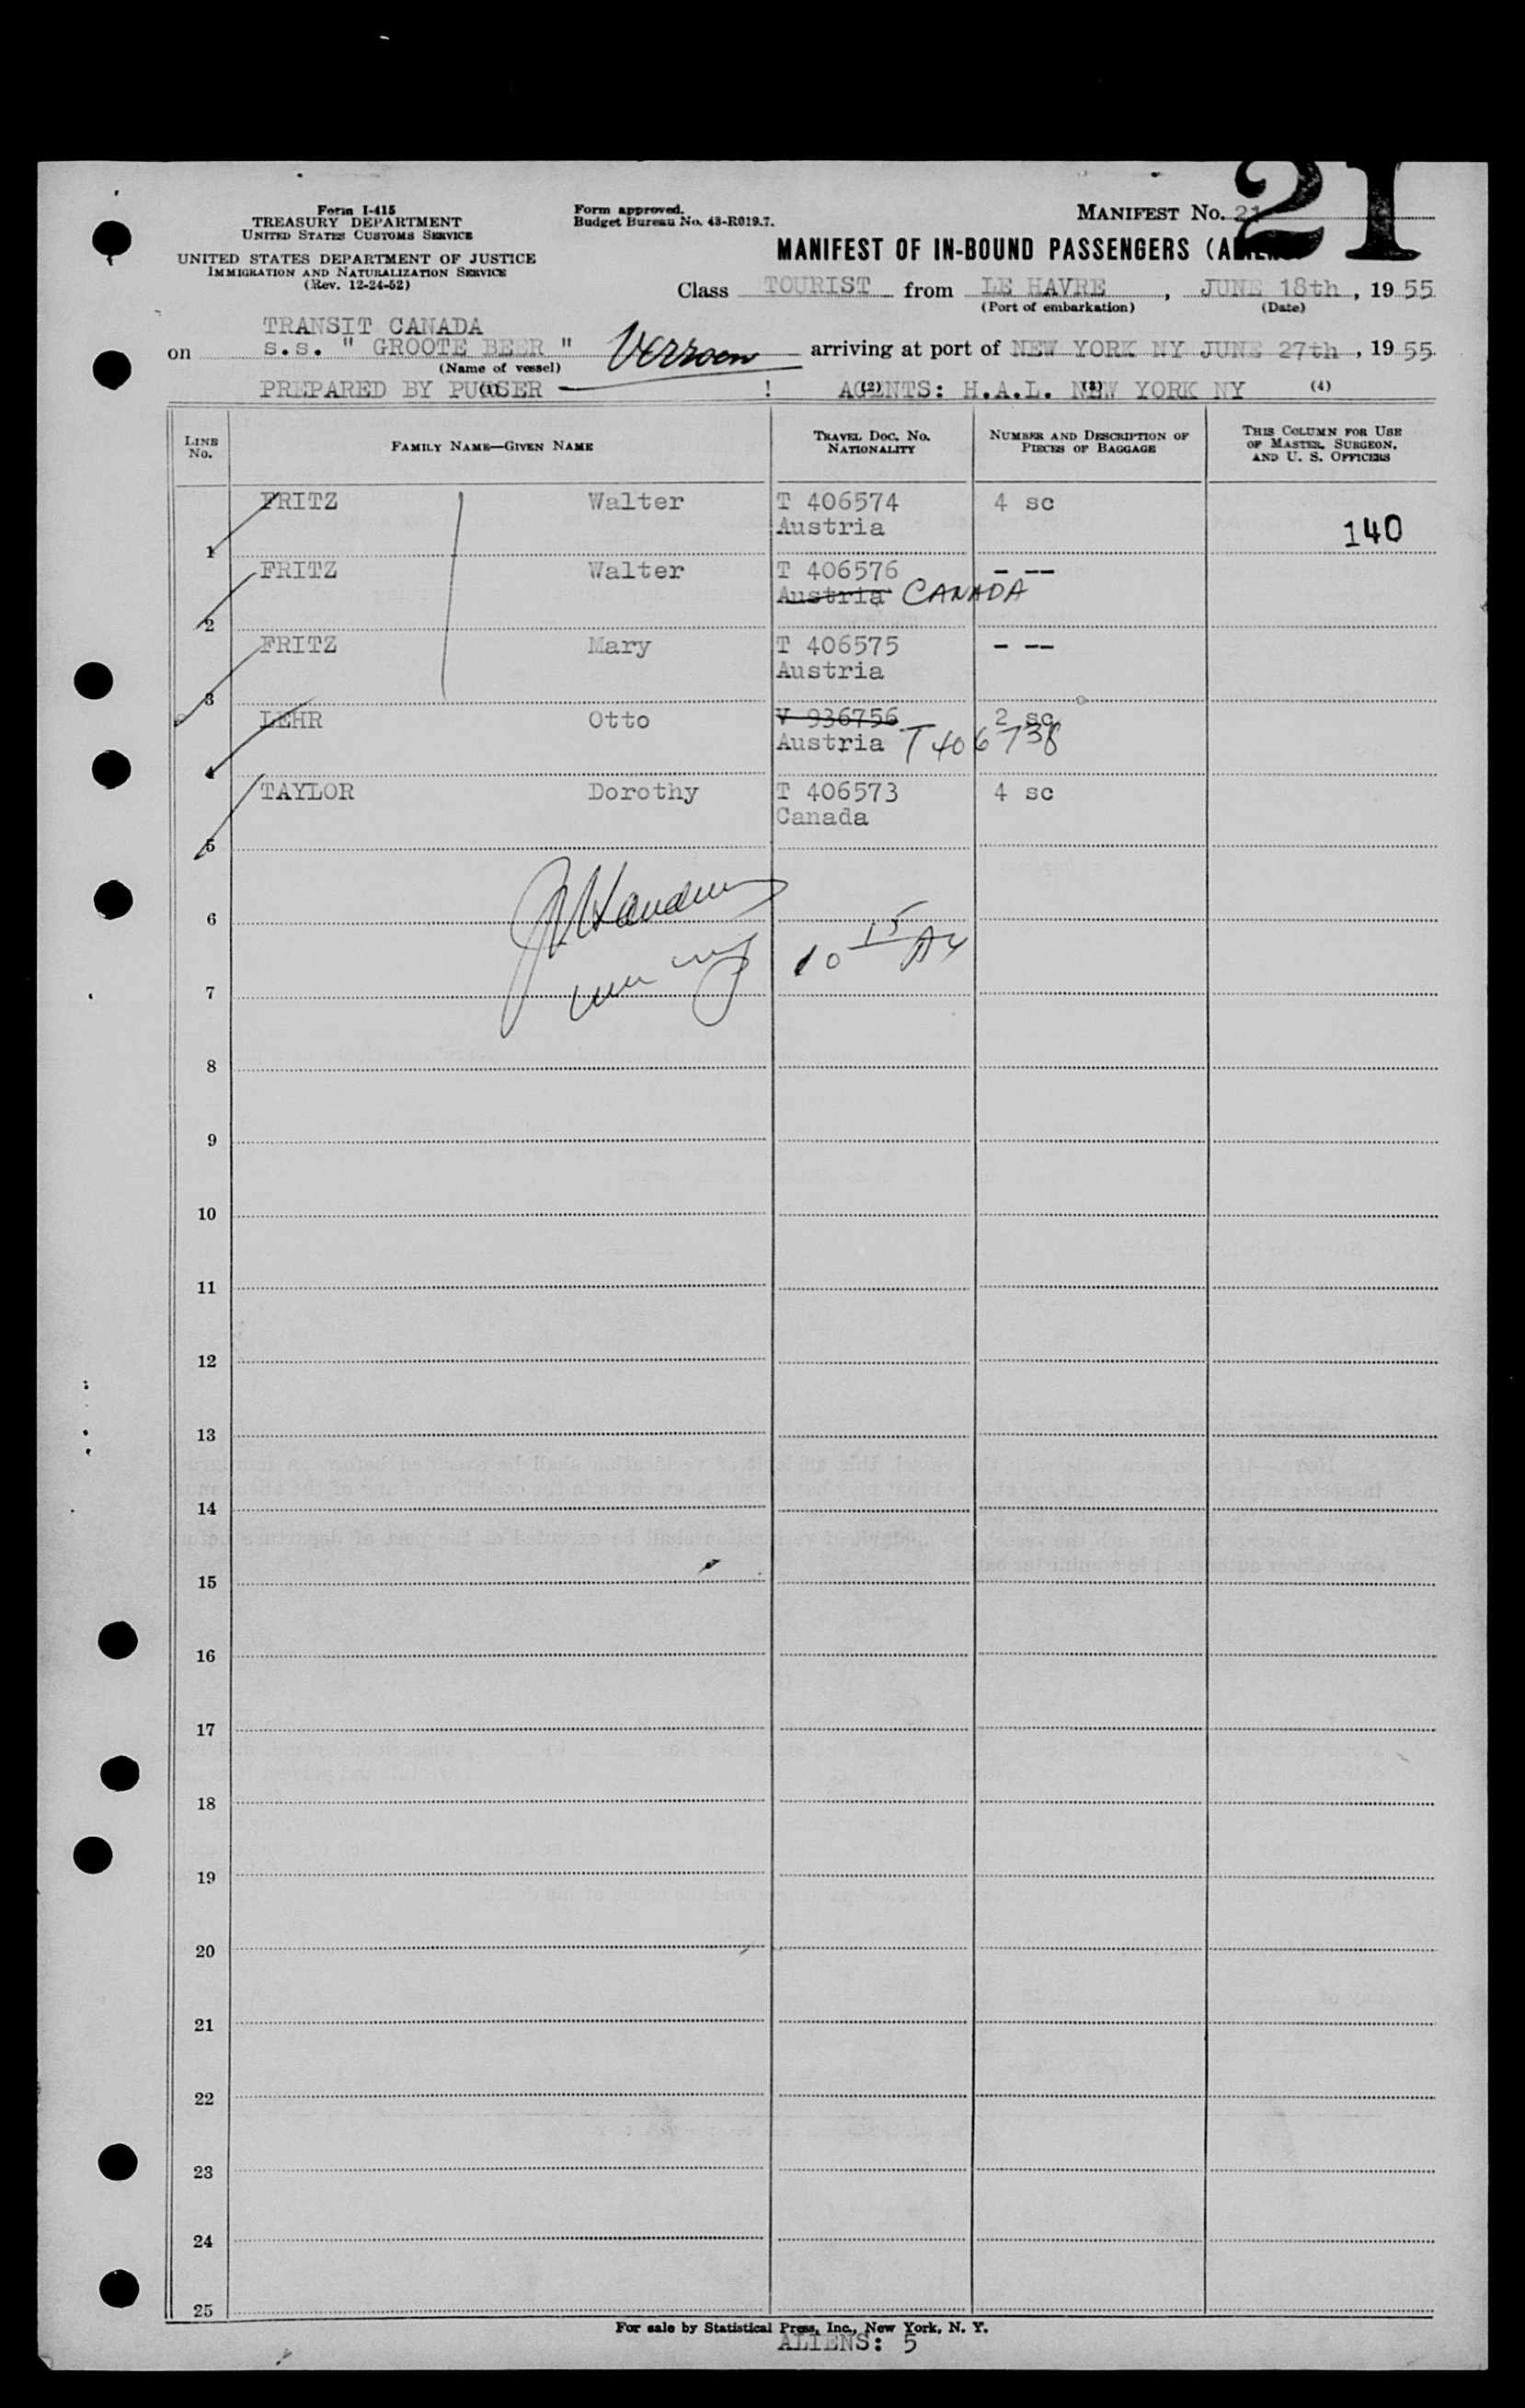 21
Form I-415
TREASURY DEPARTMENT
UNITED STATES CUSTOMS SERVICE
UNITED STATES DEPARTMENT OF JUSTICE
IMMIGRATION AND NATURALIZATION SERVICE
(Rev. 12-24-52)
Form approved.
Budget Bureau No. 43-R019.7.
MANIFEST No. 21
MANIFEST OF IN-BOUND PASSENGERS
Class TOURIST from LE HAVRE, JUNE 18th, 1955
(Port of embarkation) (Date)
TRANSIT CANADA
on s.s. " GROOTE BEER " arriving at port of NEW YORK NY JUNE 27th, 1955
(Name of vessel)
PREPARED BY PURSER (1) ! AGENTS: H.A.L. NEW YORK NY (2) (3) (4)
LINE No. FAMILY NAME—GIVEN NAME TRAVEL DOC. No. NATIONALITY NUMBER AND DESCRIPTION OF PIECES OF BAGGAGE THIS COLUMN FOR USE OF MASTER, SURGEON, AND U. S. OFFICERS
FRITZ Walter T 406574 4 sc
1 Austria 140
FRITZ Walter T 406576 - --
2 Austria CANADA
FRITZ Mary T 406575 - --
3 Austria
LEHR Otto V 936756 2 sc
4 Austria T406738
TAYLOR Dorothy T 406573 4 sc
5 Canada
6
10 15
7
8
9
10
11
12
13
14
15
16
17
18
19
20
21
22
23
24
25
For sale by Statistical Press, Inc., New York, N. Y.
ALIENS: 5